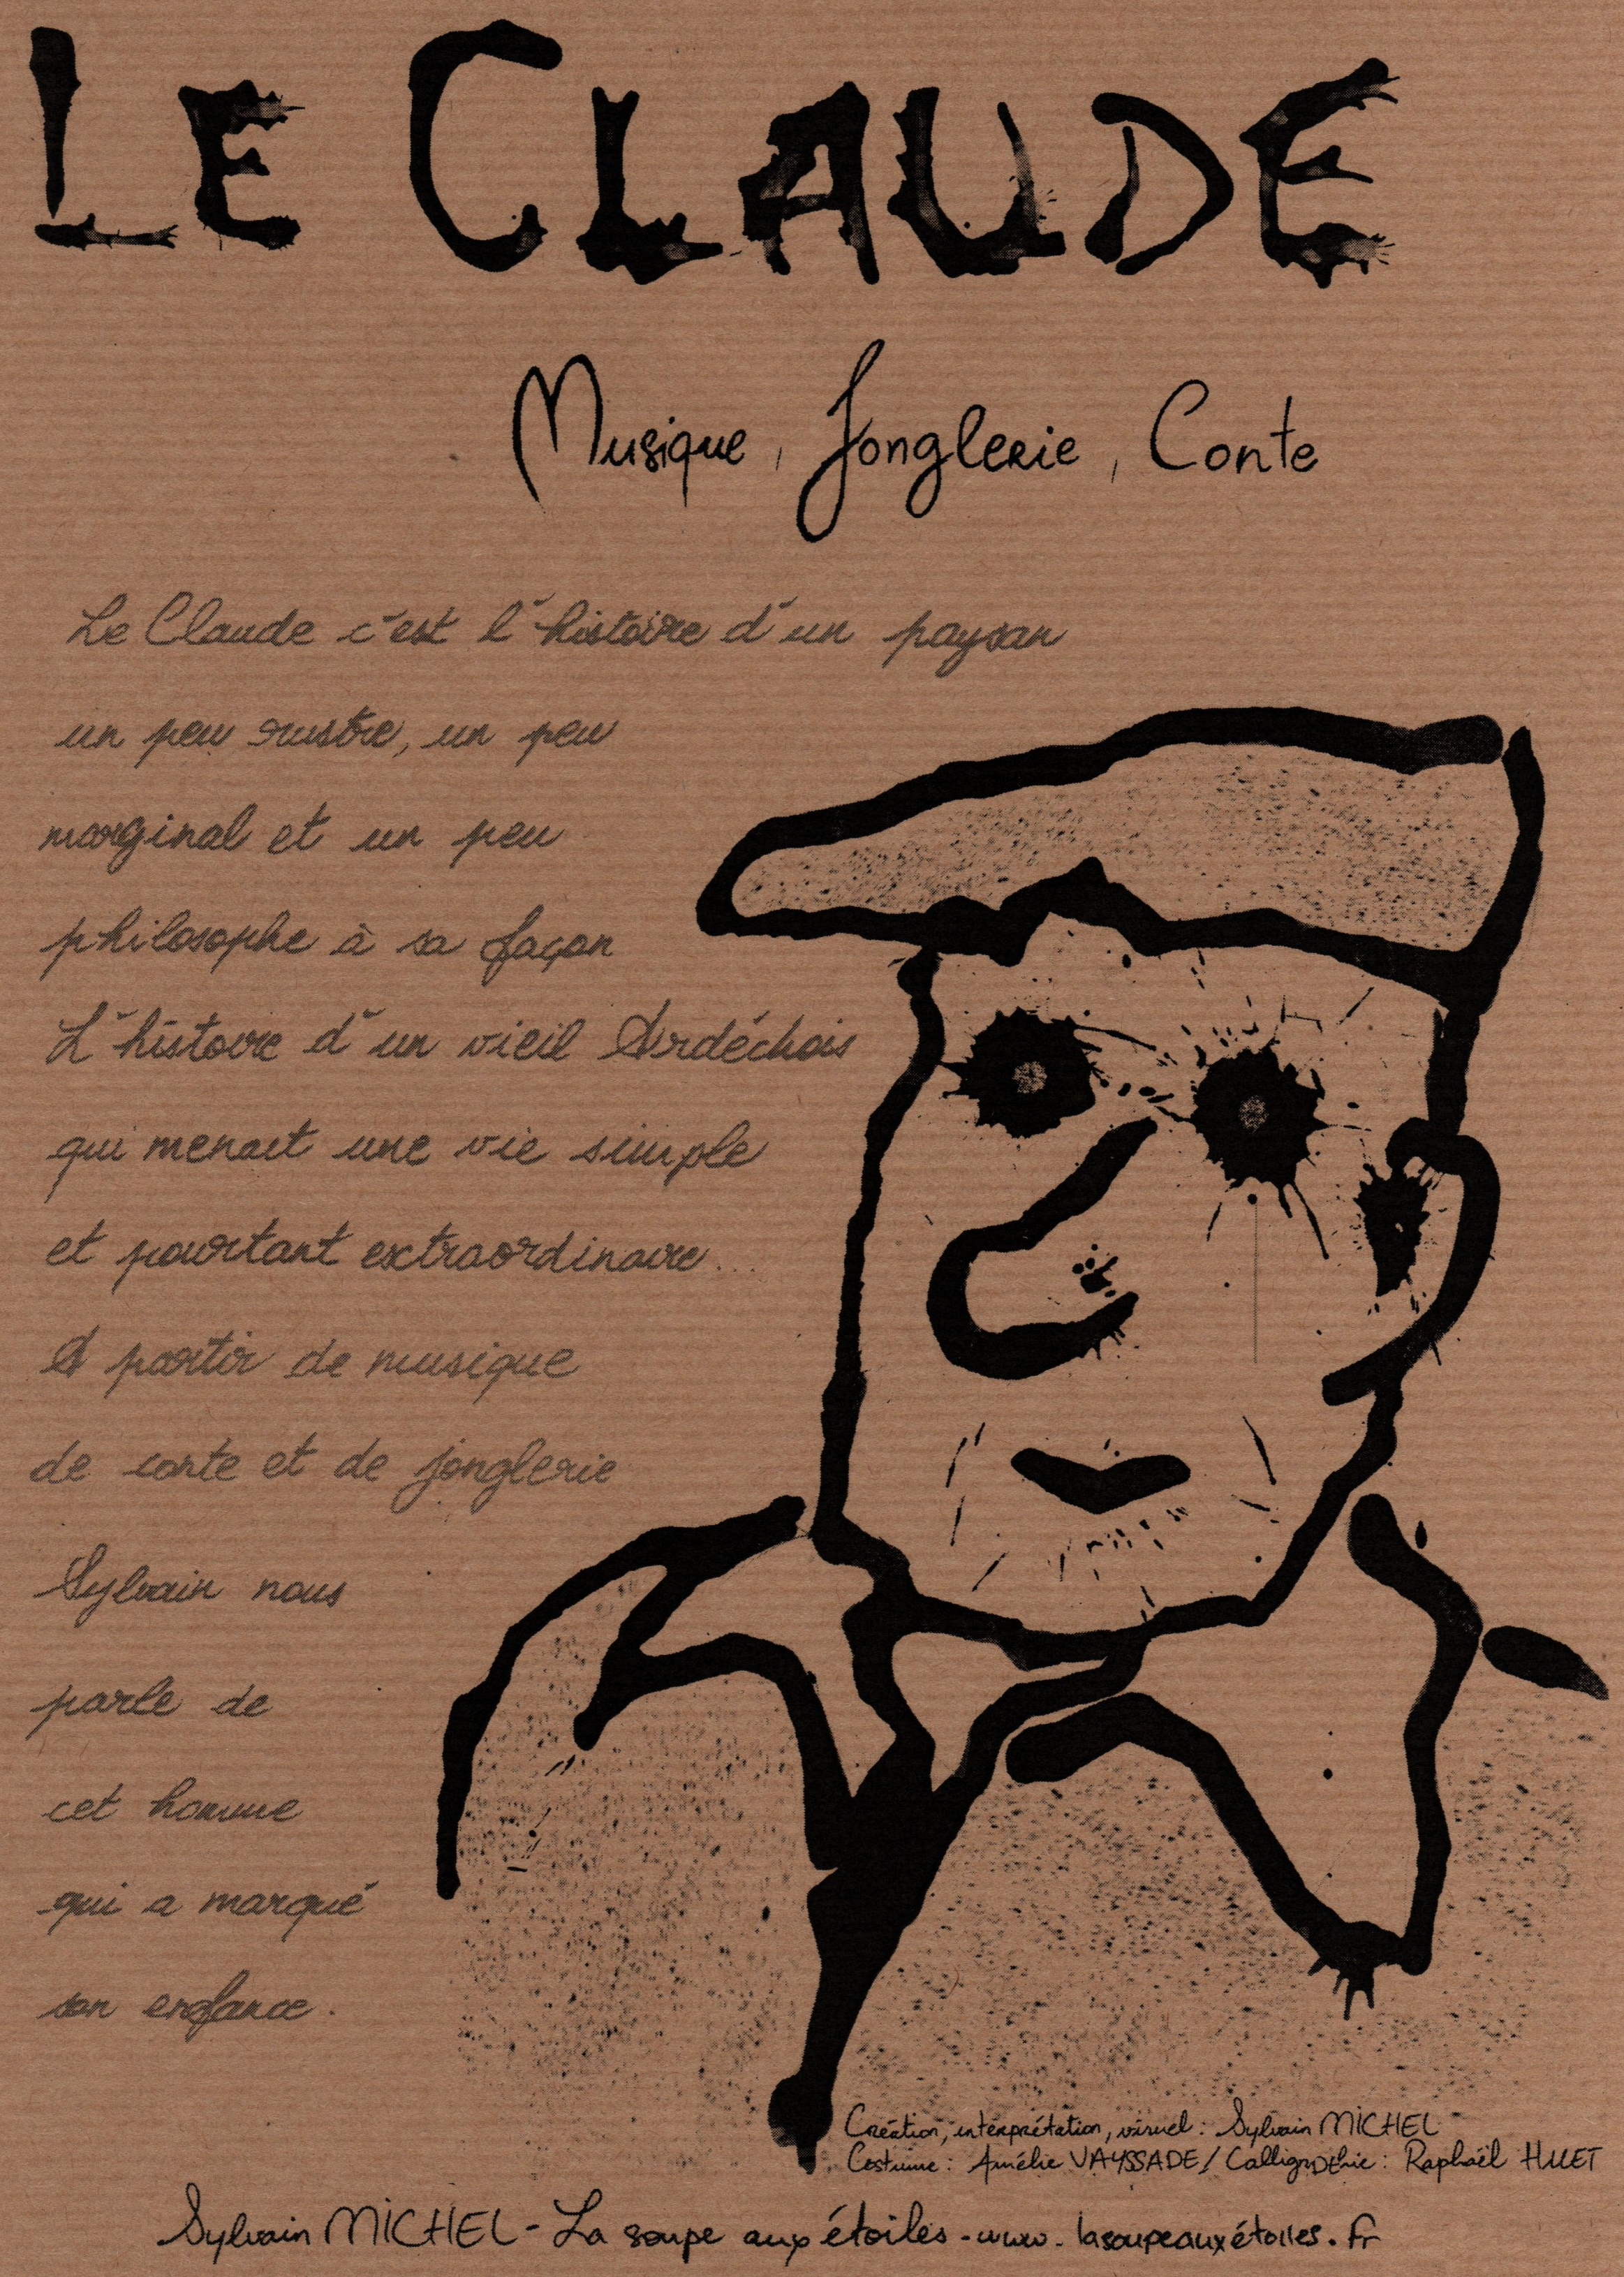 LE CLAUDE
Musique, Jonglerie, Conte
Le Claude c'est l'histoire d'un paysan
un peu rustre, un peu
marginal et un peu
philosophe à sa façon
L'histoire d'un vieil Ardéchois
qui menait une vie simple
et pourtant extraordinaire...
A partir de musique
de conte et de jonglerie
Sylvain nous
parle de
cet homme
qui a marqué
son enfance.
Création, interprétation, visuel : Sylvain MICHEL
Costume : Amélie VAYSSADE / Calligraphie : Raphaël HUET
Sylvain MICHEL - La soupe aux étoiles - www.lasoupeauxétoiles.fr